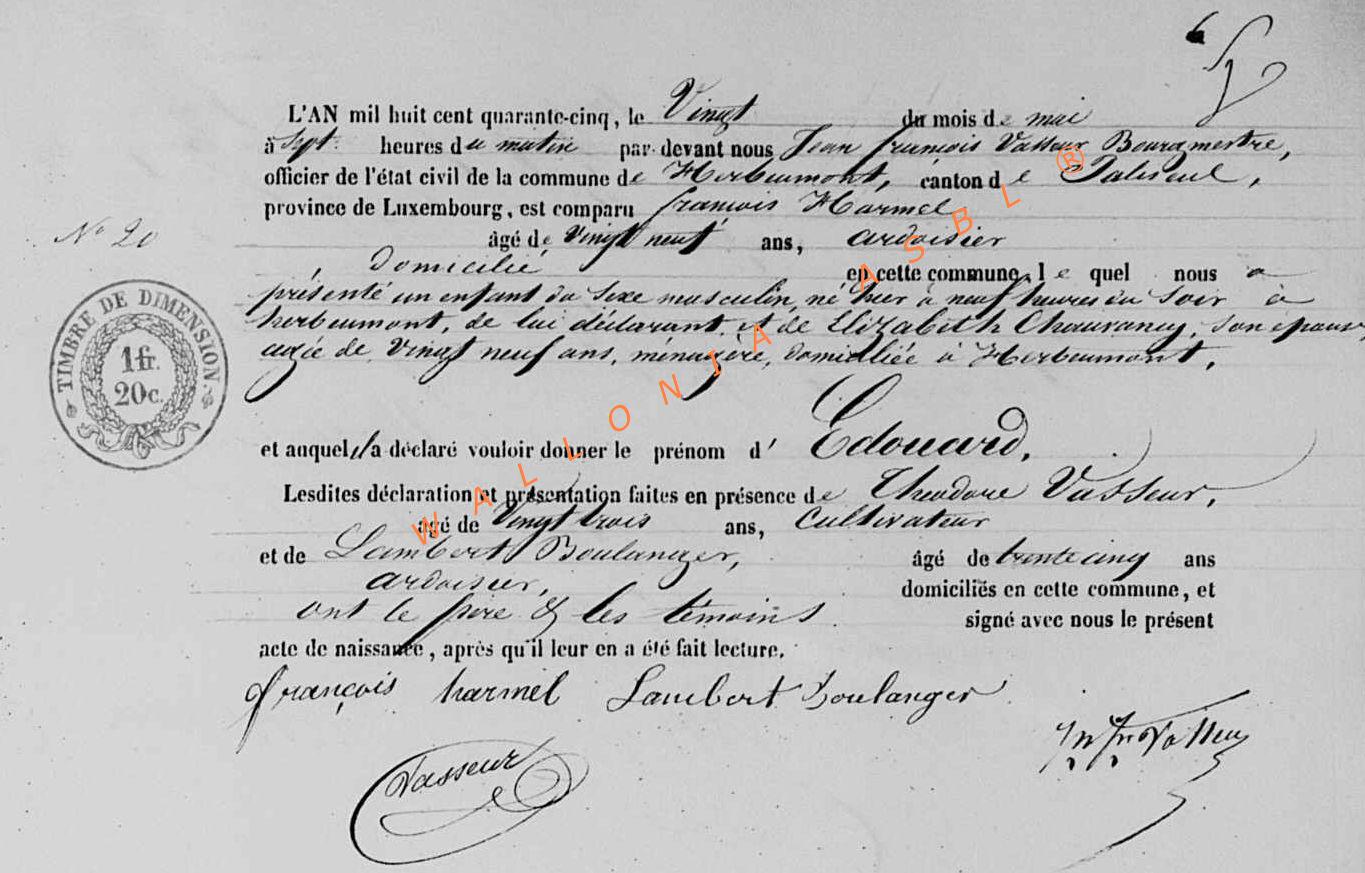 L'AN mil huit cent quarante-cinq, le Vingt du mois de mai
à Sept heures du matin par-devant nous Jean françois Vasseur Bourgmestre,
officier de l'état civil de la commune de Herbeumont, canton de Paliseul,
province de Luxembourg, est comparu françois Harmel
N° 20
âgé de Vingt neuf ans, ardoisier
domicilié en cette commune, le quel nous a
présenté un enfant du sexe masculin, né hier à neuf heures du soir à
herbeumont, de lui déclarant et de Elizabeth Chauvancy, son épouse
agée de Vingt neuf ans, ménagère, domiciliée à Herbeumont,
TIMBRE DE DIMENSION.
1 fr.
20c.
et auquel il a déclaré vouloir donner le prénom d' Edouard,
Lesdites déclaration et présentation faites en présence de Theodore Vasseur,
âgé de Vingt trois ans, Cultivateur
et de Lambert Boulanger, âgé de trente cinq ans
ardoisier, domiciliés en cette commune, et
ont le pere & les témoins signé avec nous le présent
acte de naissance, après qu'il leur en a été fait lecture.
françois harmel Lambert Boulanger
Vasseur
WALLONIA ASBL ®